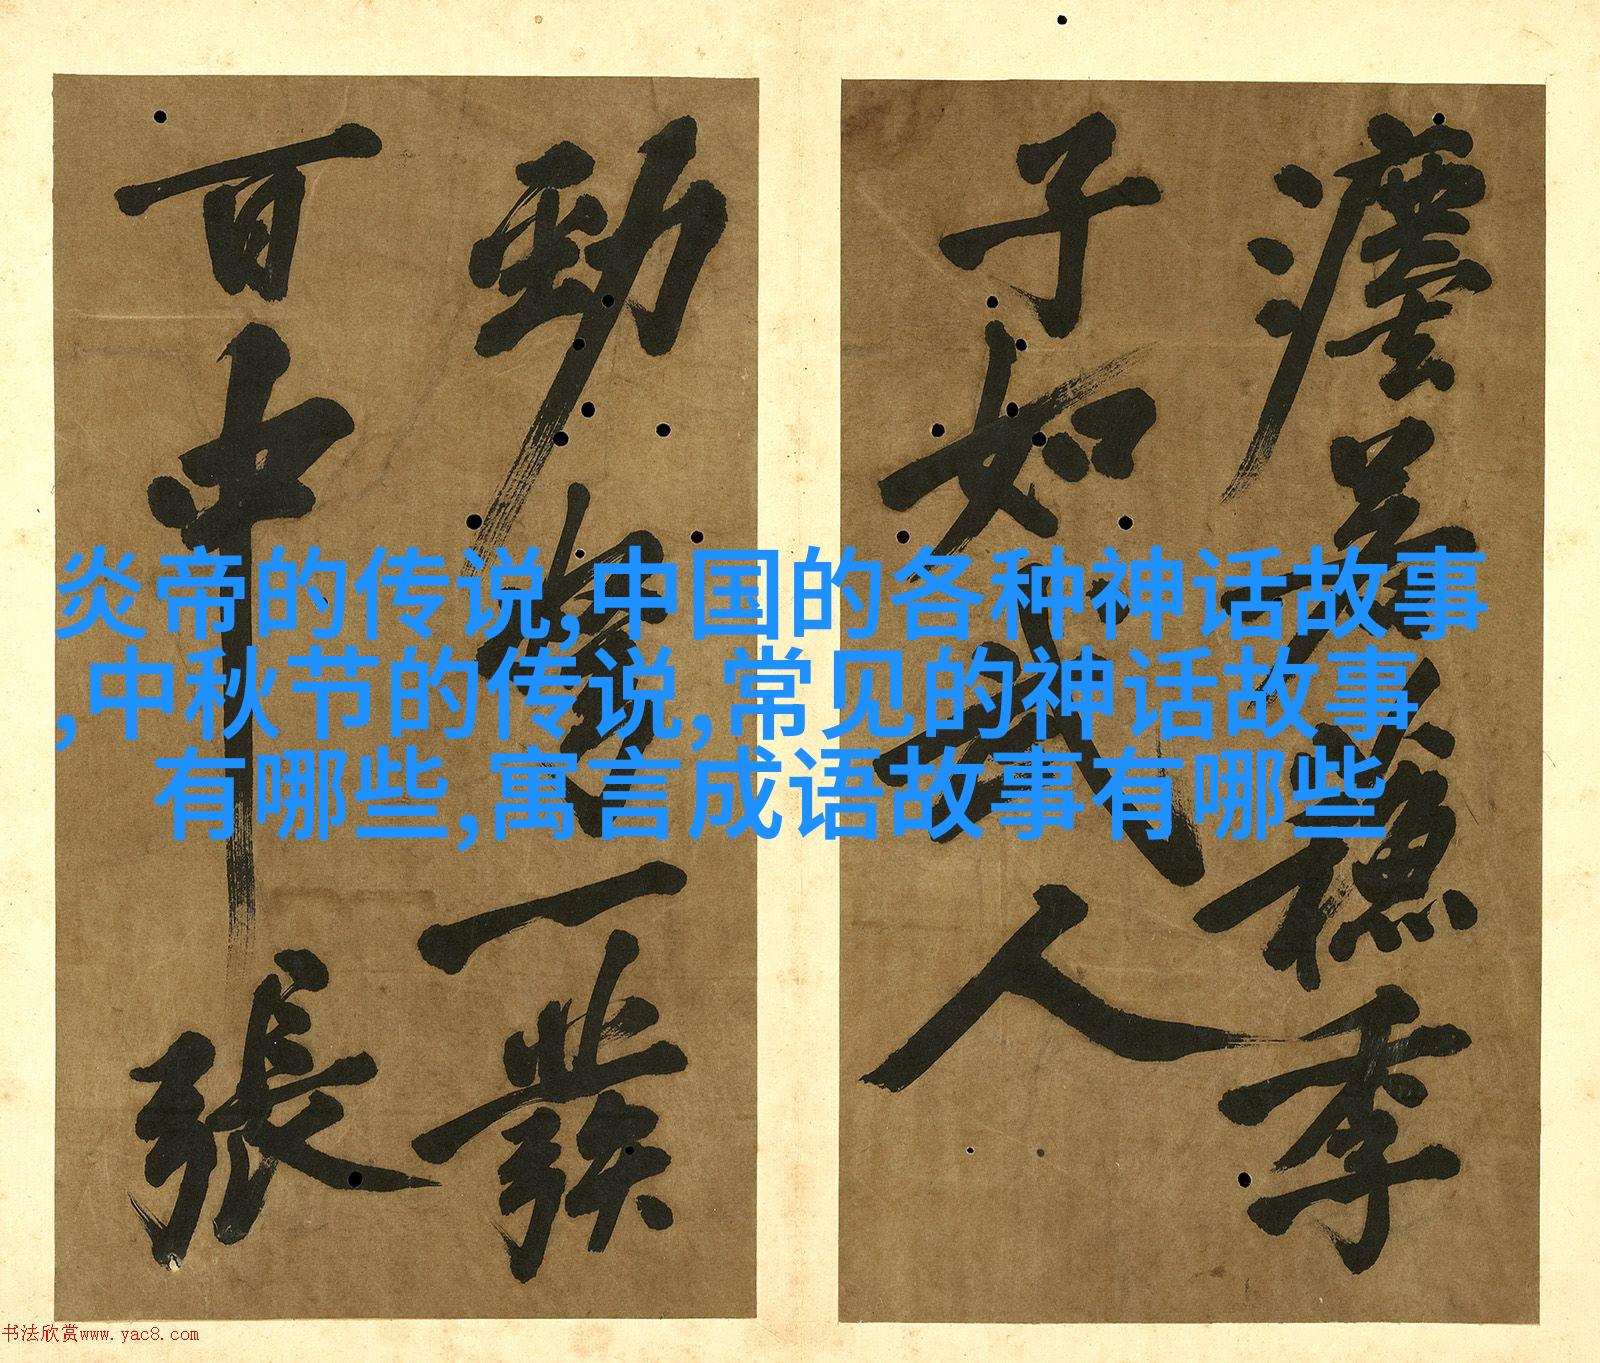 炎帝的传说,中国的各种神话故事
,中秋节的传说,常见的神话故事
有哪些,寓言成语故事有哪些
季
子如 人
勁 一發
百中張
书法欣赏www.yac8.com